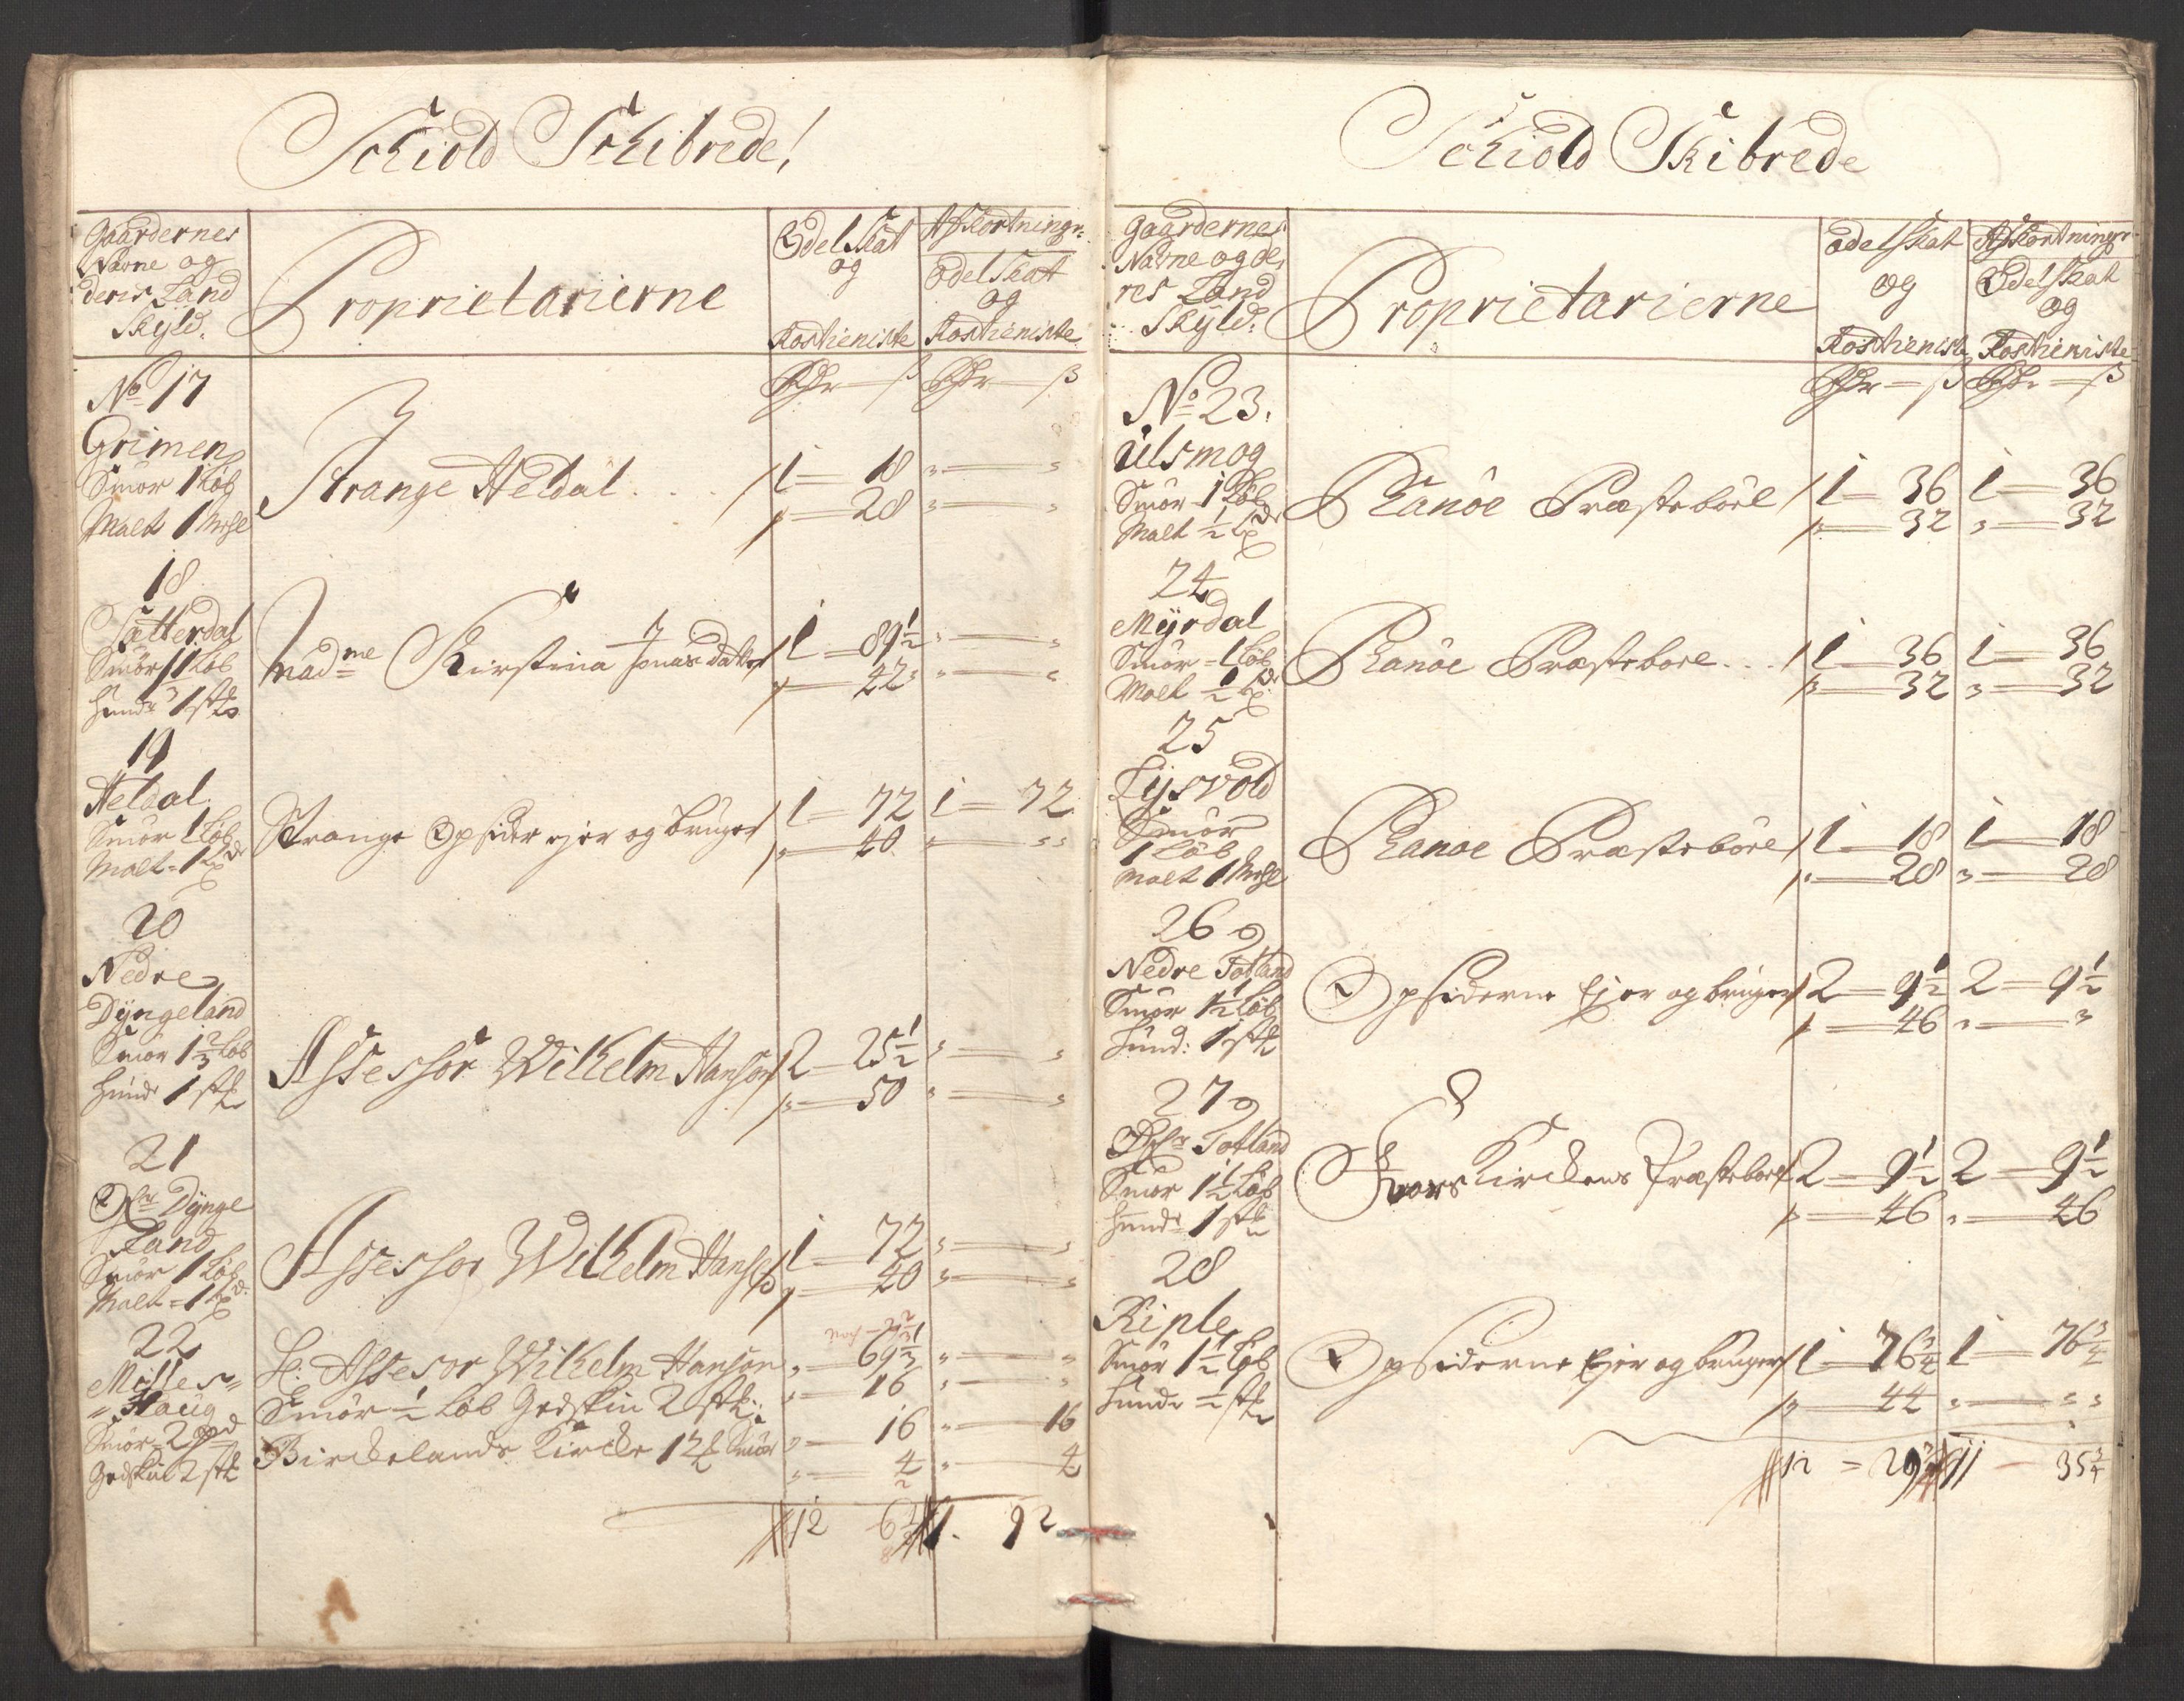 Schiold Schibrede!
Gaardernes
Nafne og
deris Land
Skyld.
Proprietarierne
Odel Skat
og
Rosthieniste
Afkortninger
Odel Skatt
og
Rosthieniste
Rdr — ß Rdr — ß
No 17
Grimen
Smör 1 Løb
Malt 1 Mhl
Strange Heldal . . . 1 — 18 " — "
" — 28 " — "
18
Sætterdal
Smör 1 Løb
Hude 1 stk
Mad me Kirstina Jonas datter 1 — 89 1/2 " — "
" — 42 " — "
19
Heldal
Smör 1 Løb
Malt = 1 Lpd
Strange Opsider ejer og bruger 1 — 72 1 — 72
" — 40 " — "
20
Nedre
Dyngeland
Smör 1 2/3 Løb
Hude 1 stk
Assessor Wilhelm Hanson 2 — 25 1/2 " — "
" — 50 " — "
21
Øfr Dynge
Land
Smör 1 Løb
Malt = 1 Lpd
Assessor Wilhelm Hansen 1 — 72 " — "
" — 40 " — "
22
Milles=
=Haug
Smör = 2 pd
Gedskin 2 stk
H. Assesor Wilhelm Hanson " — 69 1/3 " — "
Smör 1/2 Løb Gedskin 2 stk: " — 16 " — "
Birckelands Kircke 12 Smör " — 16 " — 16
" — 4 " — 4
12 6 1. 92
Schiold Skibrede
Gaardernes
Nafne og de,
res Land
Skyld.
Proprietarierne
Odelskat
og
Rosthienist
Afkortninger
Odelskat
og
Rosthieniste
Rdr — ß Rdr — ß
No 23.
Ulsmog
Smör 1 Løb
Malt 1/2 Lpd
Fanöe Præsteböel 1 — 36 1 — 36
" — 32 " — 32
24
Myrdal
Smör = 1 Løb
Malt 1/2 Lpd
Fanöe Præstebole . . . 1 — 36 1 — 36
" — 32 " — 32
25
Lysvold
Smör
1 Løb
Malt 1 Mhl
Fanöe Præstebôle 1 — 18 1 — 18
" — 28 " — 28
26
Nedre Totland
Smör 1 1/2 Løb
Hud: 1 stk
Opsiderne Ejer og bruger 2 — 9 1/2 2 — 9 1/2
" — 46 " — "
27
Øfr Totland
Smör 1 1/2 Løb
Hude 1 stk
Kirckens Præstebol 2 — 9 1/2 2 — 9 1/2
" — 46 " — 46
28
Riple
Smör 1 1/2 Løb
Hude 1/2 stk
Opsiderne Ejer og bruger 1 — 76 3/4 1 — 76 3/4
" — 44 " — "
12 = 29 11 — 35 3/4